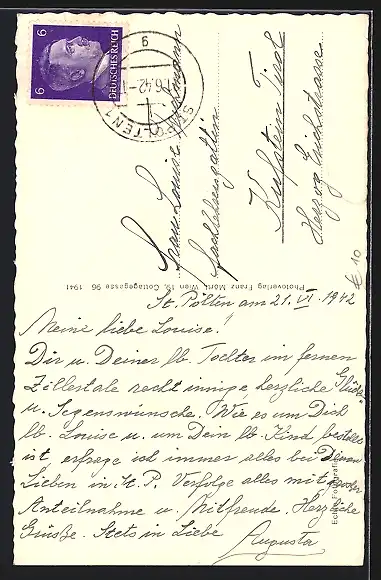 6
6
DEUTSCHES REICH
9
.6.42-1
ST. PÖLTEN 1
Frau Louise
Fachlehrersgattin
Kufstein Tirol
Herzog Erichstrasse
€ 10
Photoverlag Franz Mörtl Wien 19, Cottagegasse 96 1941
St. Pölten am 21. VI. 1942
Meine liebe Louise!
Dir u. Deiner lb. Tochter im fernen
Zillertale recht innige herzliche Glück-
u. Segenswünsche. Wie es um Dich
lb. Louise u. um Dein lb. Kind bestellt
ist erfrage ich immer alles bei Deinen
Lieben in St. P. Verfolge alles mit
Anteilnahme u. Mitfreude. Herzliche
Grüße. Stets in Liebe
Augusta